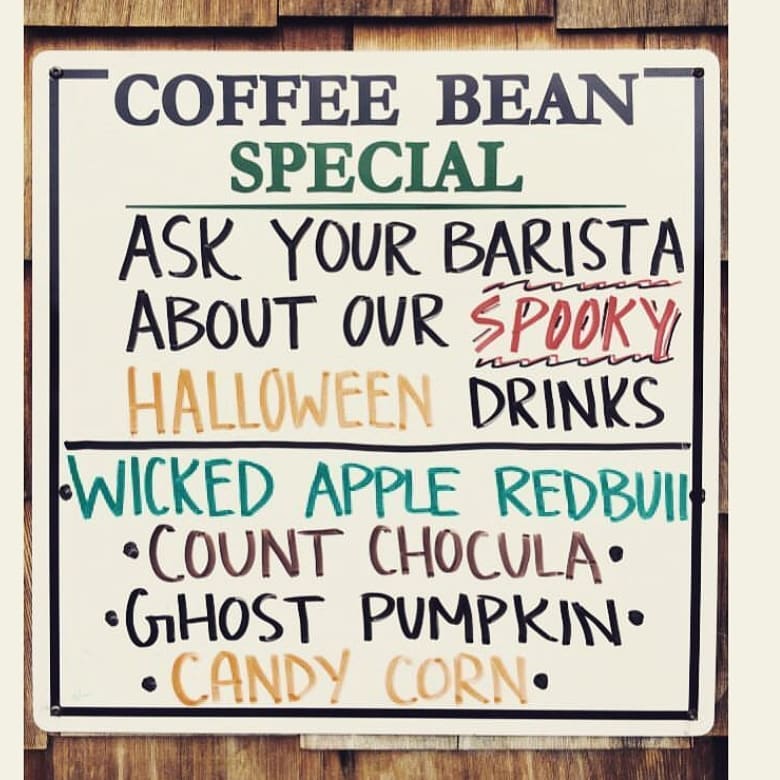 COFFEE BEAN
SPECIAL
ASK YOUR BARISTA
ABOUT OUR SPOOKY
HALLOWEEN DRINKS
•WICKED APPLE REDBUll•
•COUNT CHOCULA•
•GHOST PUMPKIN•
•CANDY CORN•